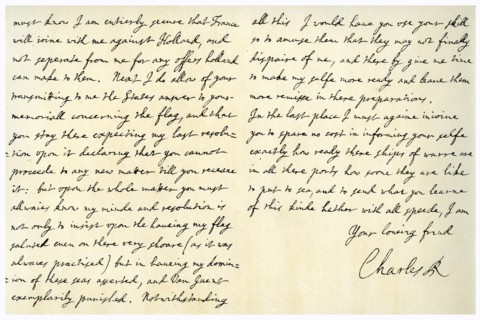 must know I am entierly secure that France
will ioine with me against Holland, and
not seperate from me for any offers holland
can make to them. Next I do allow of your
transmitting to me the States answer to your
memoriall concerning the flag, and that
you stay there expecting my last resolu=
=tion upon it declaring that you cannot
proceede to any new matter till you receave
it; but upon the whole matter you must
allwaies know my minde and resolution is
not only to insist upon the haueing my flag
saluted even on there very shoare (as it was
alwaies practised) but in haueing my domin=
=ion of these seas asserted, and Van Guent
exemplarily punished. Notwithstanding
all this I would have you use your skill
so to amuse them that they may not finally
dispaire of me, and there by give me time
to make my selfe more ready and leave them
more remisse in there preparations.
In the last place I must againe inioine
you to spare no cost in informing your selfe
exactly how ready there ships of warre are
in all there ports how soone they are like
to put to sea, and to send what you learne
of this kinde hether with all speede, I am
Your loueing frind
Charles R